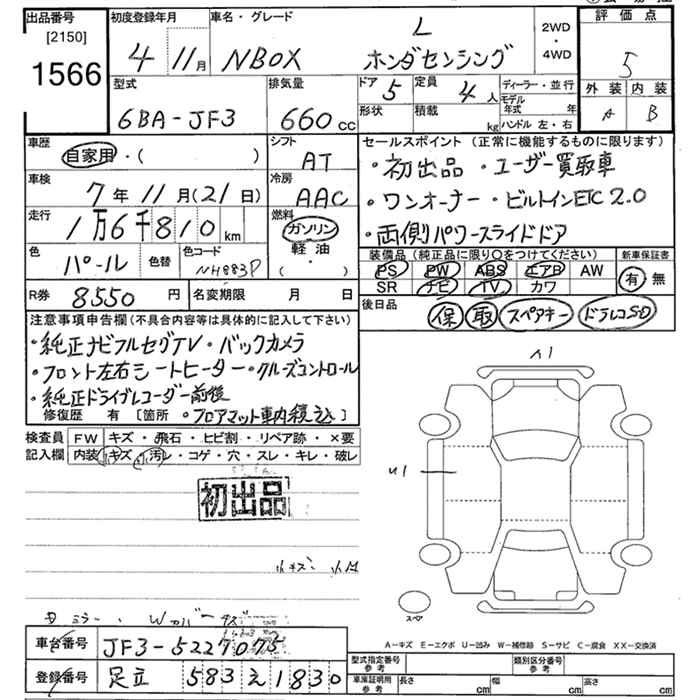 出品番号 初度登録年月 車名・グレード 評価点
[2150]
1566
4 11月 NBOX L ホンダセンシング 2WD・4WD 5
型式 排気量 ドア 5 定員 4人 ディーラー・並行 外装 内装
6BA-JF3 660cc 形状 積載 kg モデル年式 年 A B
ハンドル 左・右
車歴 シフト セールスポイント(正常に機能するものに限ります)
自家用・( ) AT ・初出品・ユーザー買取車
車検 7年11月(21日) 冷房 AAC ・ワンオーナー・ビルトインETC2.0
走行 1万6千810km 燃料 ガソリン ・両側パワースライドドア
軽油・( )
色 パール 色替 色コード NH883P
装備品(純正品に限り○をつけてください) 新車保証書
PS PW ABS エアB AW 有・無
SR ナビ TV カワ
R券 8550円 名変期限 月 日
後日品 保 取 スペアキー ドラレコSD
注意事項申告欄(不具合内容等は具体的に記入して下さい)
・純正ナビフルセグTV・バックカメラ
・フロント左右シートヒーター・クルーズコントロール
・純正ドライブレコーダー前後
修復歴 有 [箇所 ・フロアマット車内積込]
検査員 FW キズ・飛石・ヒビ割・リペア跡・×要
記入欄 内装 小キズ・小汚レ・コゲ・穴・スレ・キレ・破レ
初出品
小キズ
スペア
A-キズ E-エクボ U-凹み W-補修跡 S-サビ C-腐食 XX-交換済
車台番号 JF3-5227075
登録番号 足立 583 え 1830
型式指定番号 参考 類別区分番号 参考
車庫証明用 参考 長さ cm 幅 cm 高さ cm